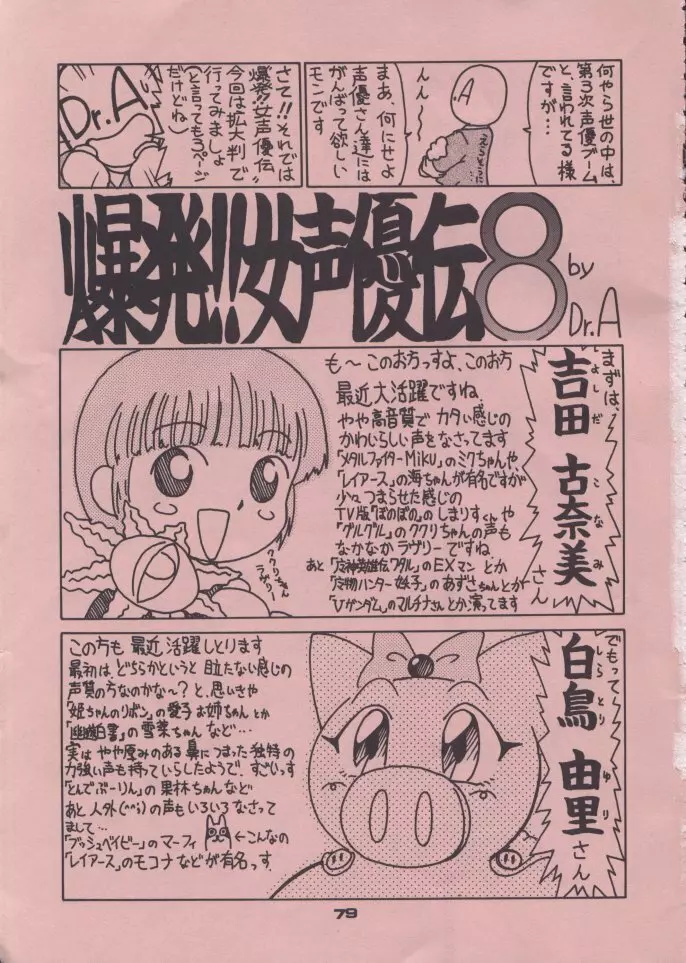 何やら世の中は、
第3次声優ブーム
と、言われてる様
ですが…
.A
えらそうに
んんー
まあ、何にせよ
声優さん達には
がんばって欲しい
モンです
さて!!それでは
“爆発!!女声優伝”
今回は拡大判で
行ってみましょ
(と言っても3ページ
だけどね)
Dr.A
爆発!!女声優伝8
by
Dr.A
まずは、
吉田 古奈美さん
よしだ こなみ
も〜このお方っすよ、このお方
最近大活躍ですね。
やや高音質でカタい感じの
かわいらしい声をなさってます
「メタルファイターMiku」のミクちゃんや、
「レイアース」の海ちゃんが有名ですが
少々つまらせた感じの
TV版「ぼのぼの」のしまりすくんや
「グルグル」のククリちゃんの声も
なかなかラヴリーですね
あと「魔神英雄伝ワタル」のEXマンとか
「妖物ハンター妖子」のあずさちゃんとか
「Vガンダム」のマルチナさんとか演ってます
ククリちゃん
ラヴリー
でもって、
白鳥 由里さん
しらとり ゆり
この方も最近活躍しとります
最初は、どちらかというと目立たない感じの
声質の方なのかな〜?と、思いきや
「姫ちゃんのリボン」の愛子お姉ちゃんとか
「幽遊白書」の雪菜ちゃんなど…
実はやや厚みのある鼻につまった独特の
力強い声も持っていらしたようで、すごいっす
「とんでぶーりん」の果林ちゃんなど
あと人外(^^;)の声もいろいろなさって
まして…
「ブッシュベイビー」のマーフィ ←こんなの
「レイアース」のモコナなどが有名っす。
79